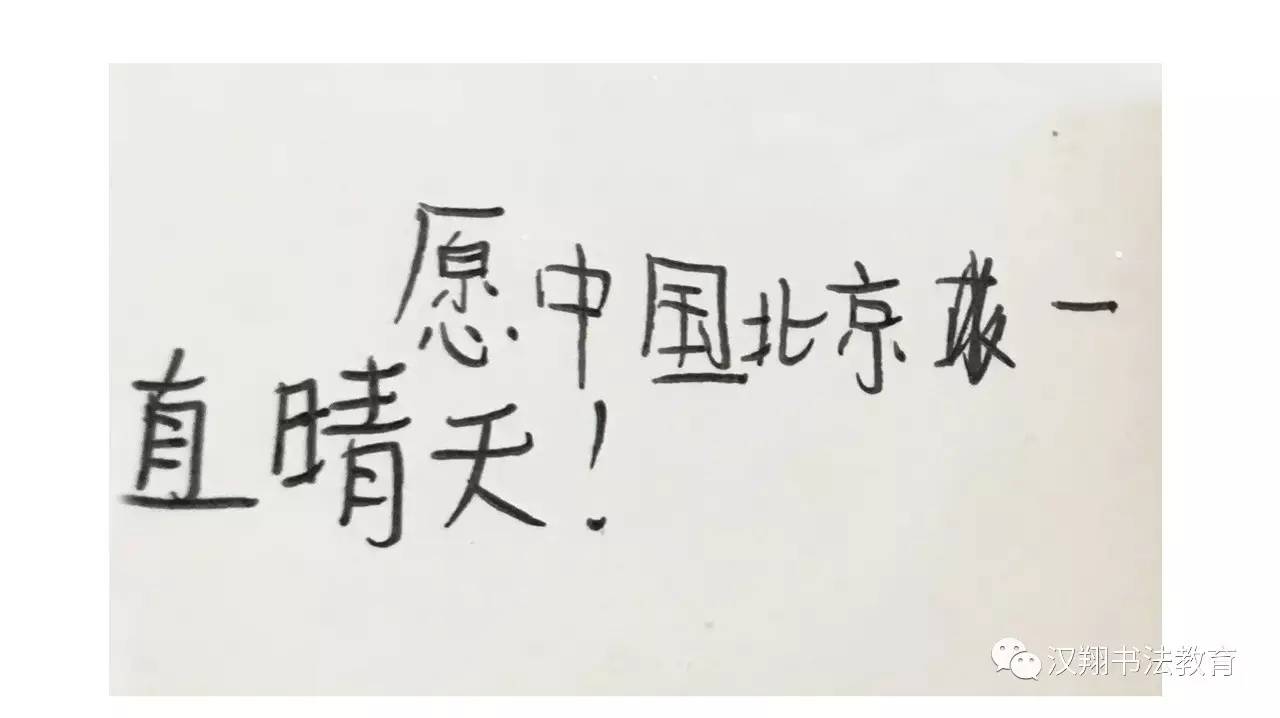 愿中国北京一
直晴天!
汉翔书法教育